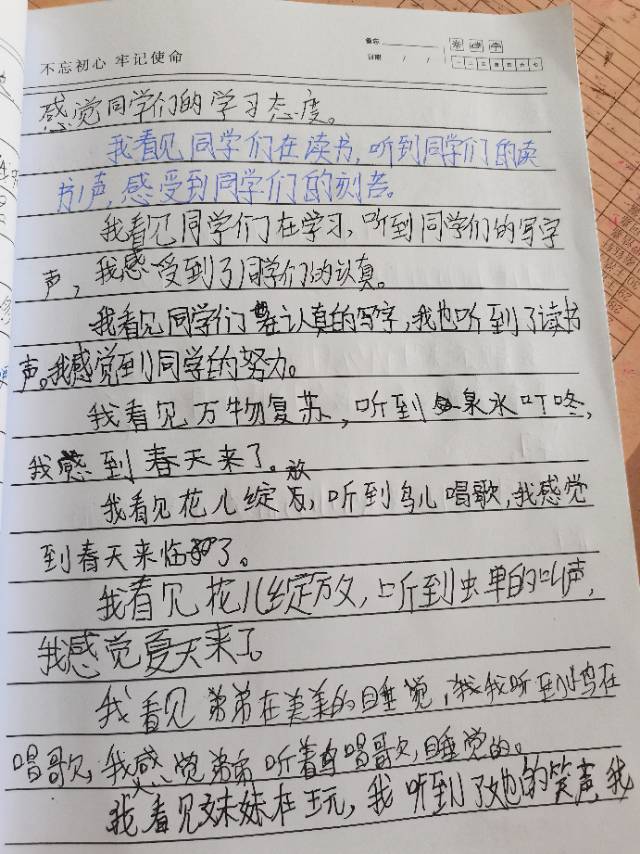 不忘初心 牢记使命
备忘
日期 / /
一 二 三 四 五 六 七
感觉同学们的学习态度。
我看见同学们在读书,听到同学们的读
书声,感受到同学们的刻苦。
我看见同学们在学习,听到同学们的写字
声,我感受到了同学们的认真。
我看见同学们在认真的写字,我也听到了读书
声。我感觉到同学的努力。
我看见万物复苏,听到泉水叮咚,
我感到春天来了。
我看见花儿绽放,听到鸟儿唱歌,我感觉
到春天来临了。
我看见花儿绽放,听到虫单的叫声,
我感觉夏天来了。
我看见弟弟在美美的睡觉,我听到小鸟在
唱歌,我感觉弟弟听着鸟唱歌,睡觉的。
我看见妹妹在玩,我听到了她的笑声,我